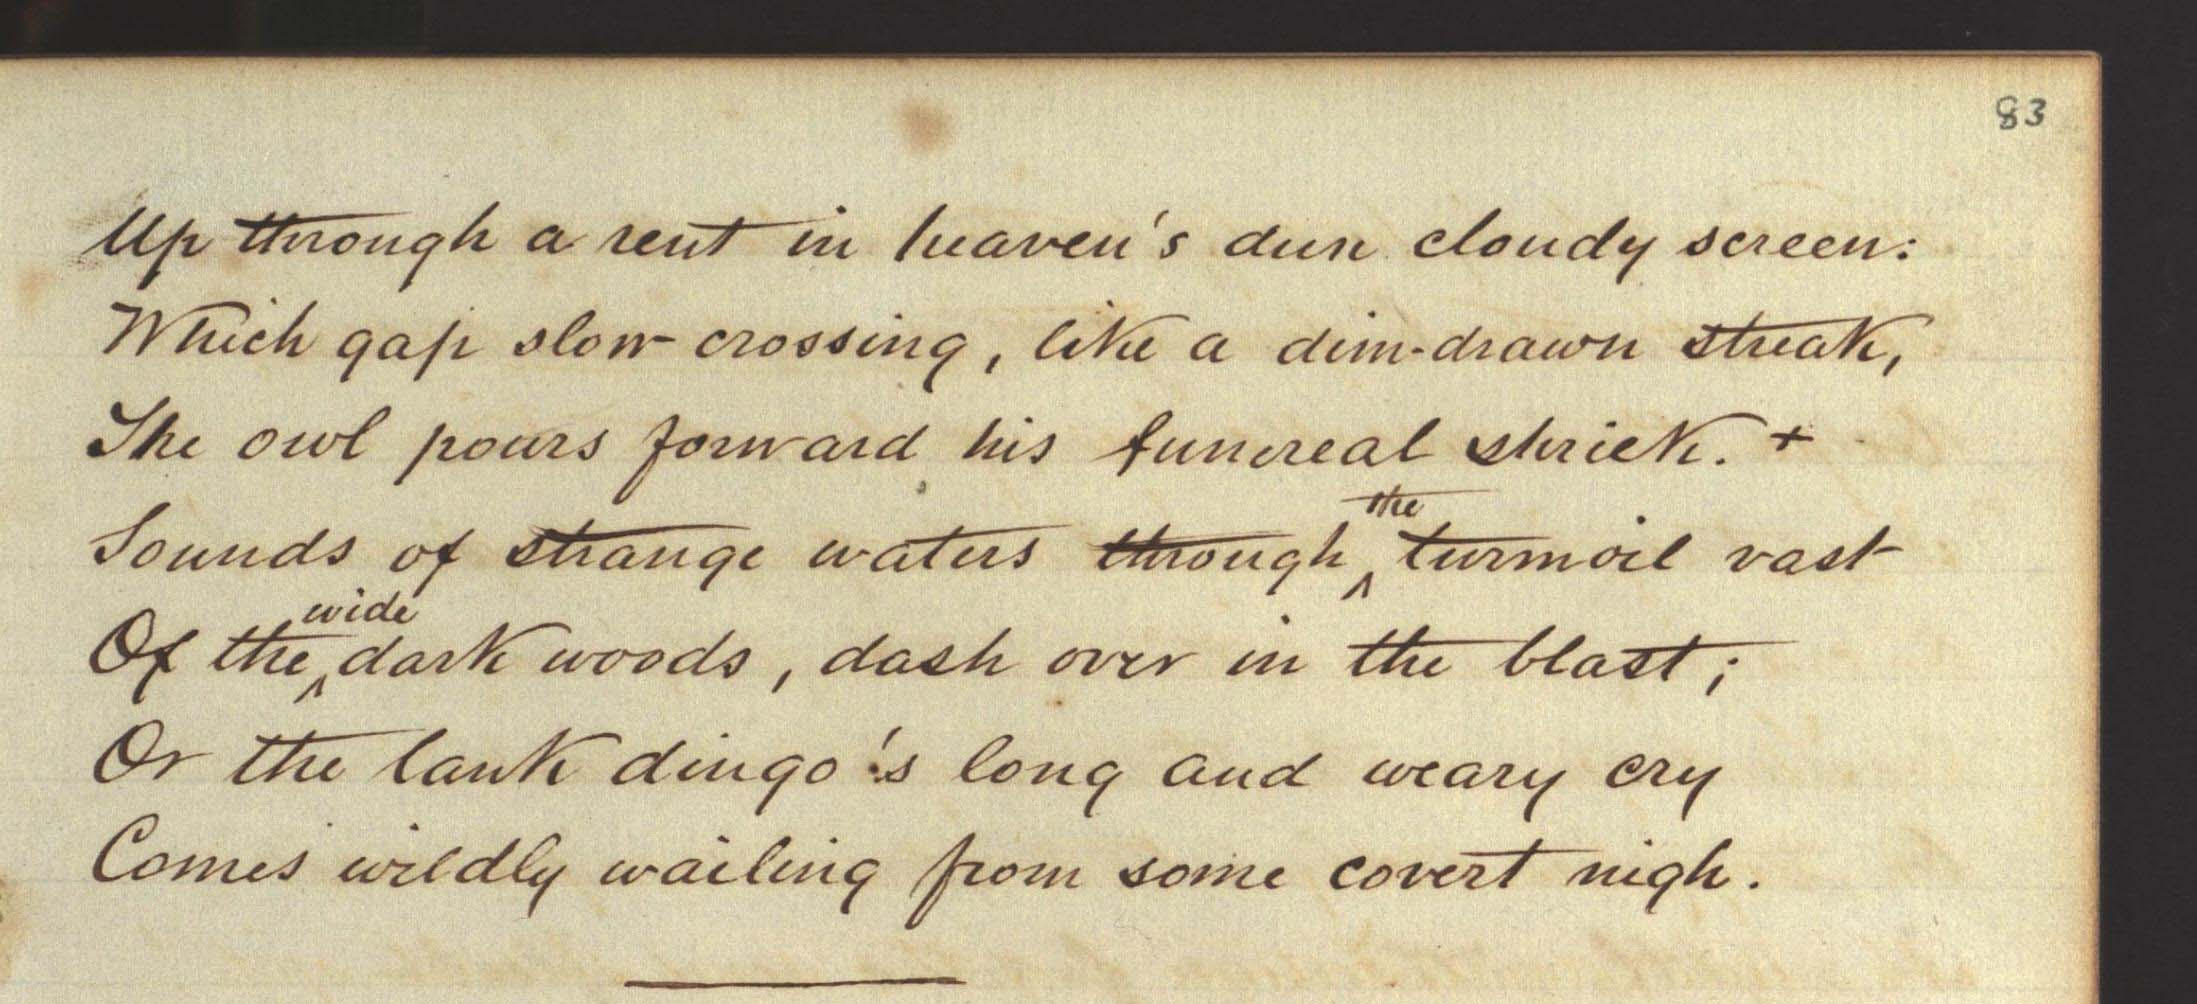 83
Up through a rent in heaven's dun cloudy screen:
Which gap slow crossing, like a dim-drawn streak,
The owl pours forward his funereal shriek. +
Sounds of strange waters through ^the turmoil vast
Of the ^wide dark woods, dash over in the blast;
Or the lank dingo's long and weary cry
Comes wildly wailing from some covert nigh.